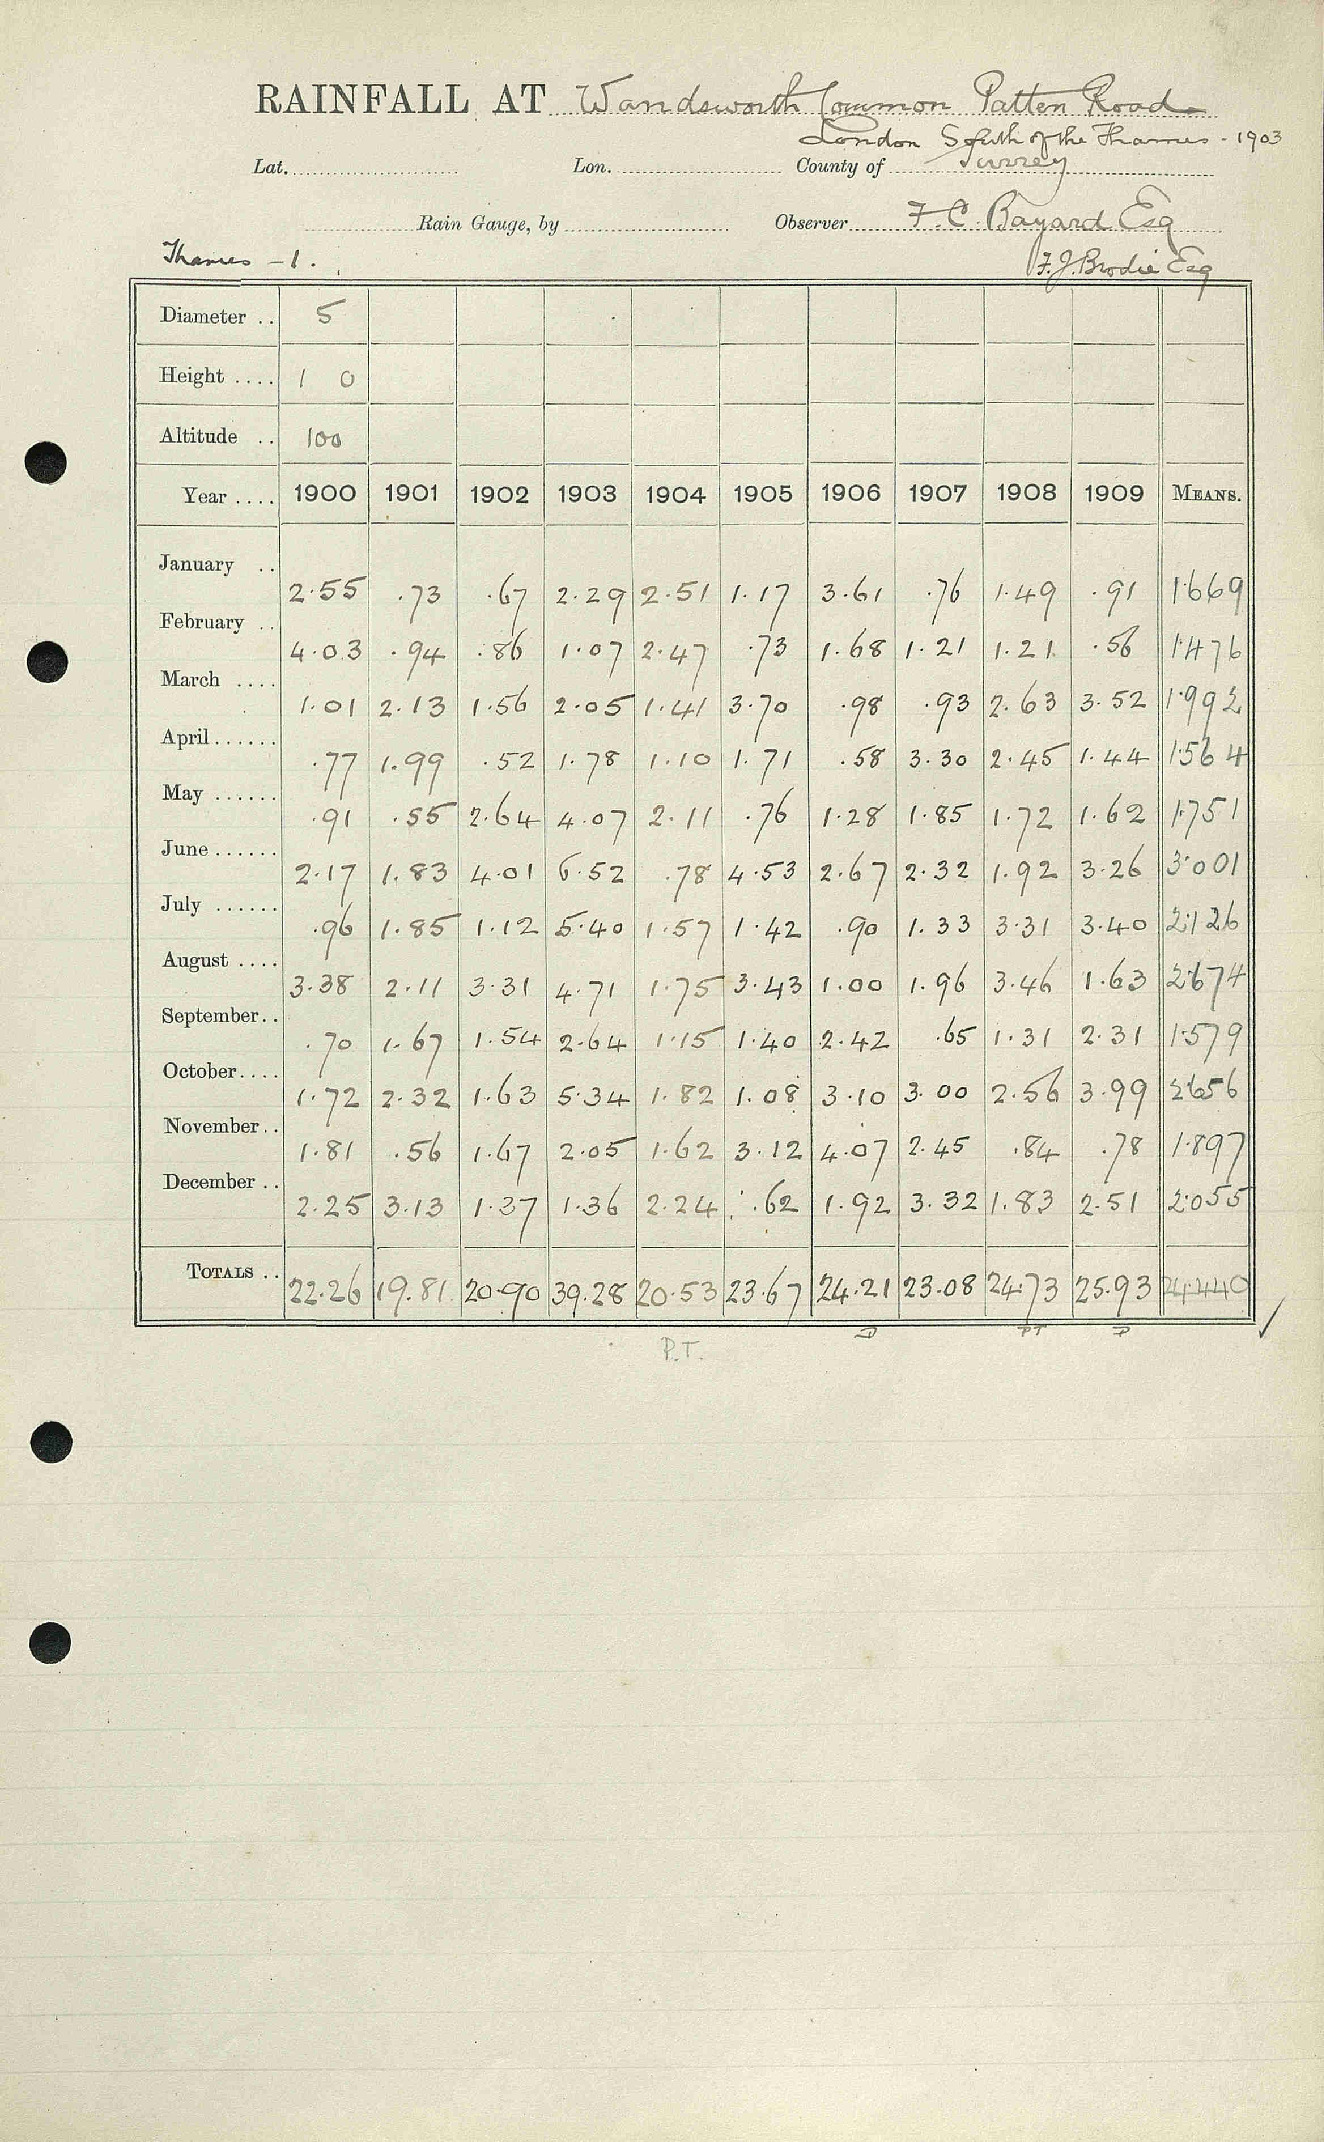 RAINFALL AT Wandsworth Common Patten Road
London South of the Thames - 1903
Lat. Lon. County of Surrey
Rain Gauge, by Observer F. C. Bayard Esq
Thames - 1. F. J. Brodie Esq
Diameter .. 5
Height .... 1 0
Altitude .. 100
Year .... 1900 1901 1902 1903 1904 1905 1906 1907 1908 1909 MEANS.
January .. 2.55 .73 .67 2.29 2.51 1.17 3.61 .76 1.49 .91 1.669
February .. 4.03 .94 .86 1.07 2.47 .73 1.68 1.21 1.21 .56 1.476
March .... 1.01 2.13 1.56 2.05 1.41 3.70 .98 .93 2.63 3.52 1.992
April...... .77 1.99 .52 1.78 1.10 1.71 .58 3.30 2.45 1.44 1.564
May ...... .91 .55 2.64 4.07 2.11 .76 1.28 1.85 1.72 1.62 1.751
June...... 2.17 1.83 4.01 6.52 .78 4.53 2.67 2.32 1.92 3.26 3.001
July ...... .96 1.85 1.12 5.40 1.57 1.42 .90 1.33 3.31 3.40 2.126
August .... 3.38 2.11 3.31 4.71 1.75 3.43 1.00 1.96 3.46 1.63 2.674
September.. .70 1.67 1.54 2.64 1.15 1.40 2.42 .65 1.31 2.31 1.579
October.... 1.72 2.32 1.63 5.34 1.82 1.08 3.10 3.00 2.56 3.99 2.656
November.. 1.81 .56 1.67 2.05 1.62 3.12 4.07 2.45 .84 .78 1.897
December .. 2.25 3.13 1.37 1.36 2.24 .62 1.92 3.32 1.83 2.51 2.055
TOTALS .. 22.26 19.81 20.90 39.28 20.53 23.67 24.21 23.08 24.73 25.93 24.440
P.T. D PT P